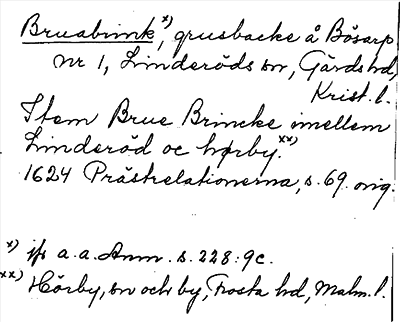 Bruabrink,x) grusbacke å Bösarp
nr 1, Linderöds sn, Gärds hd,
Krist. l.
Item Brue Brincke imellem
Linderöd oc hørby.xx)
1624 Prästrelationerna, s. 69. orig.
x) jfr a.a. Anm. s. 228: 9c.
xx) Hörby, sn och by, Frosta hd, Malm. l.